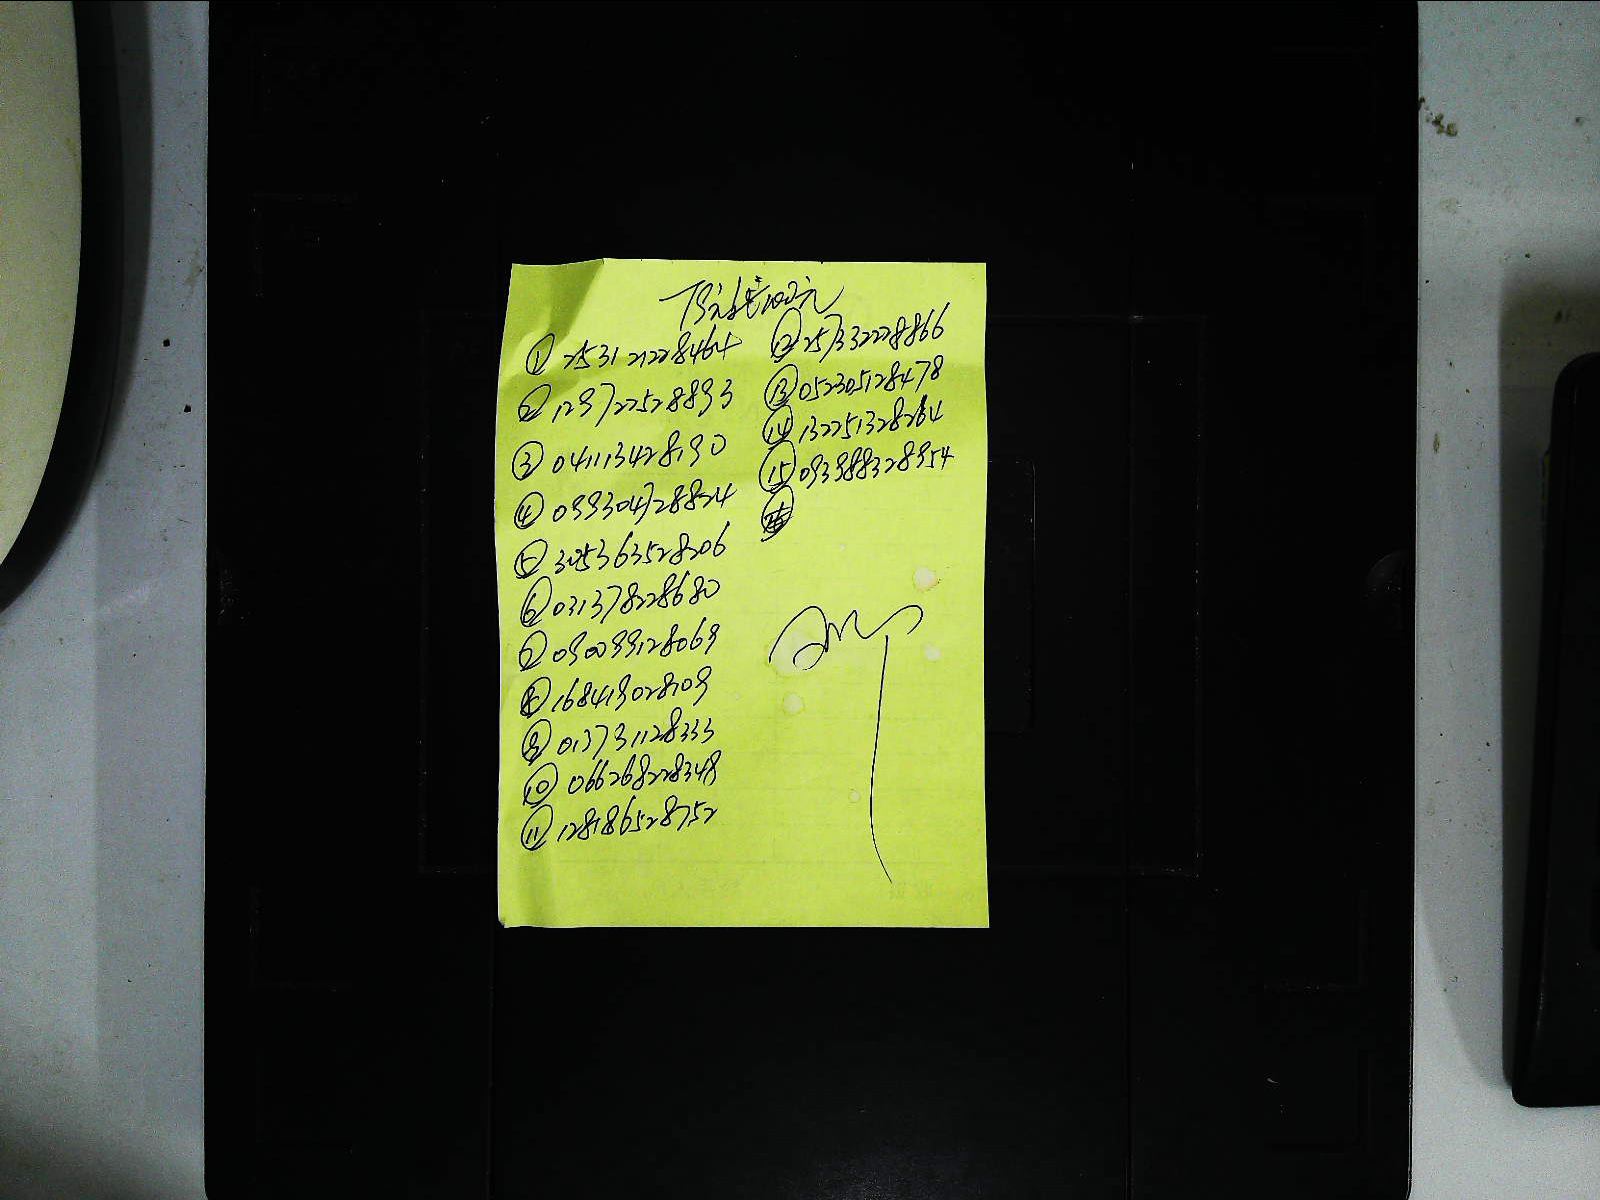 ① 253121228464
② 129722528893
③ 041113428190
④ 099304728824
⑤ 305363528206
⑥ 031378228680
⑦ 090099128069
⑧ 168419028109
⑨ 013731128333
⑩ 066268228348
⑪ 128186528752
⑫ 257332228866
⑬ 052305128478
⑭ 132251328264
⑮ 093988328954